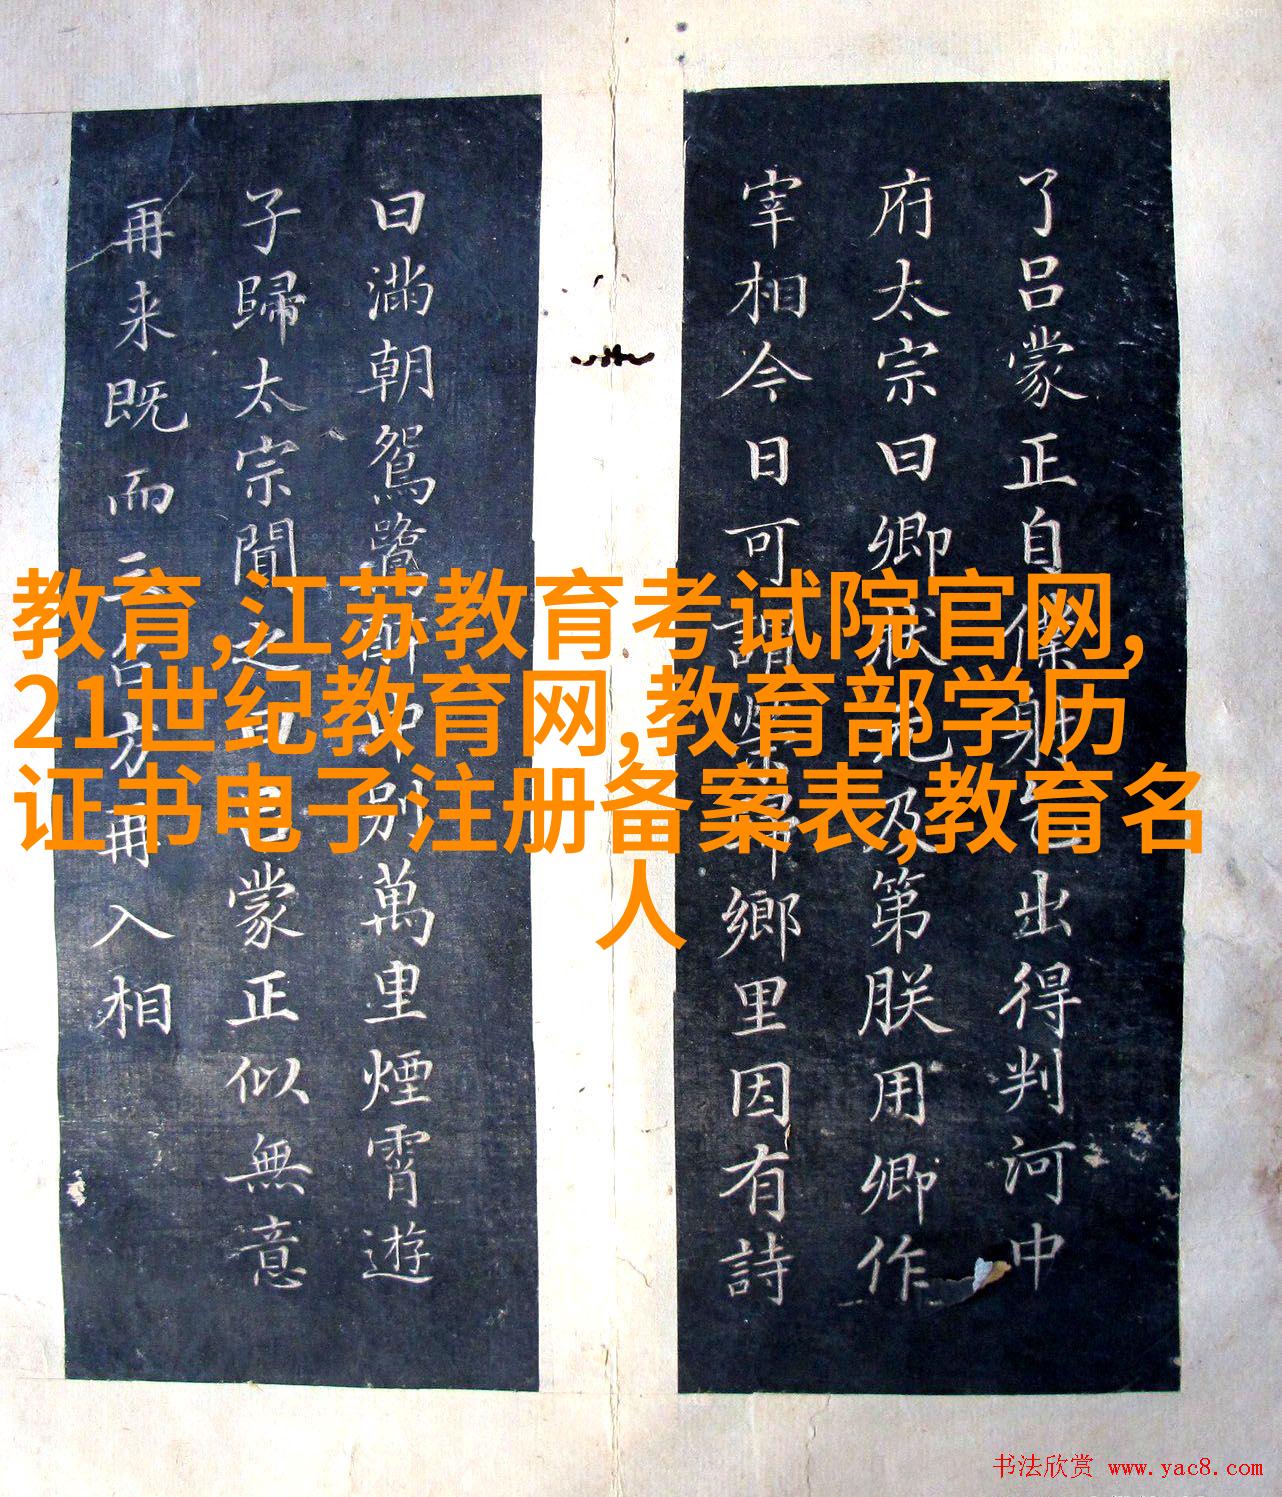 了呂蒙正自僕射出得判河中
府太宗曰卿狀元及第朕用卿作
宰相今日可謂榮歸鄉里因有詩
曰滿朝鴛鷺醉中別萬里煙霄遊
子歸太宗聞之曰蒙正似無意
再来既而三召方再入相
教育,江苏教育考试院官网,
21世纪教育网,教育部学历
证书电子注册备案表,教育名
人
书法欣赏 www.yac8.com